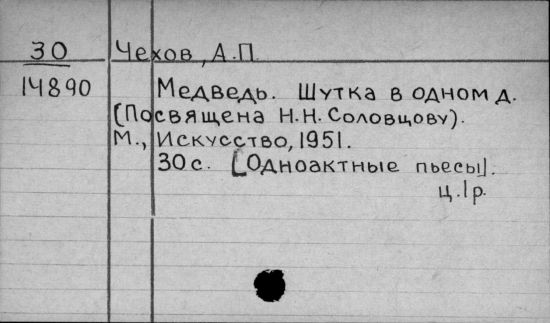 30 Чехов, А.П.
14890 Медведь. Шутка в одном д.
(Посвящена Н.Н. Соловцову).
М., Искусство, 1951.
30 с. [Одноактные пьесы].
ц. 1 р.